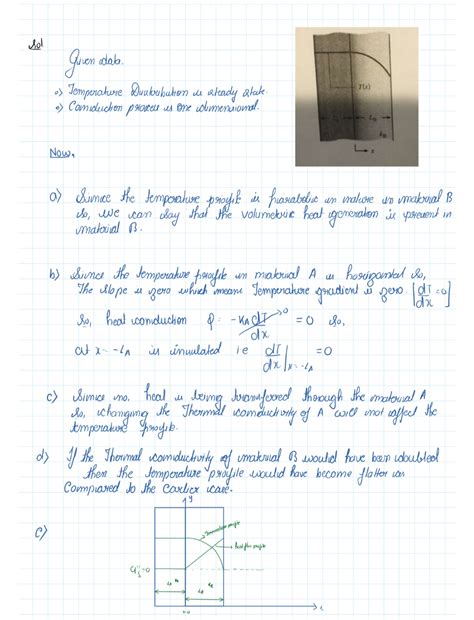 Sol
Given data.
o) Temperature Distribution is steady state.
o) Conduction process is one dimensional.
T(x)
L_B
k_B
x
Now,
a) Since the temperature profile is parabolic in nature in material B
so, we can say that the volumetric heat generation is present in
material B.
b) Since the temperature profile in material A is horizontal so,
The slope is zero which means Temperature gradient is zero [dT/dx = 0]
So, heat conduction q = -K_A dT/dx → 0 = 0 So,
at x = -L_A is insulated i.e dT/dx | x=-L_A = 0
c) Since no. heat is being transferred through the material A
so, changing the Thermal conductivity of A will not affect the
temperature profile.
d) If the Thermal conductivity of material B would have been doubled
then the temperature profile would have become flatter as
Compared to the Earlier case.
e)
y
Temperature profile
heat flux profile
=0
x